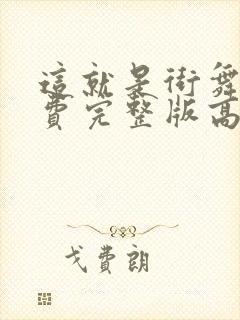 這就是街舞
費完整版高
戈費朗